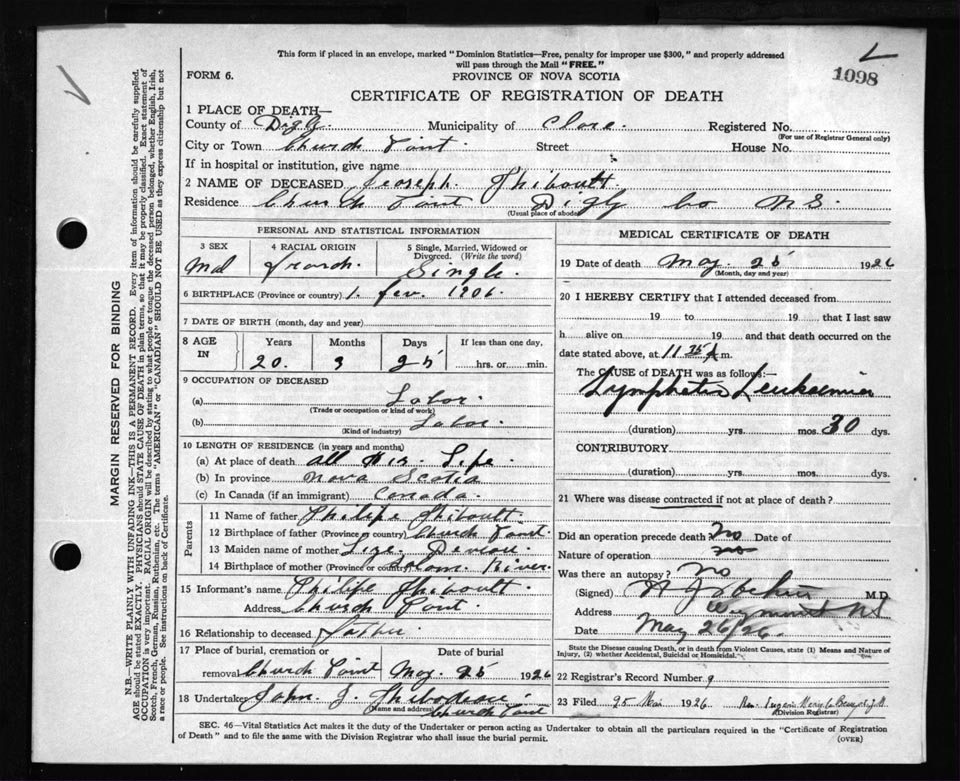 This form if placed in an envelope, marked "Dominion Statistics—Free, penalty for improper use $300," and properly addressed
will pass through the Mail "FREE."
1098
FORM 6.
PROVINCE OF NOVA SCOTIA
CERTIFICATE OF REGISTRATION OF DEATH
1 PLACE OF DEATH—
County of Digby Municipality of Clare. Registered No.
(For use of Registrar General only)
City or Town Church Point. Street House No.
If in hospital or institution, give name
2 NAME OF DECEASED Joseph. Thiboult.
Residence Church Point Digby Co N S.
(Usual place of abode)
PERSONAL AND STATISTICAL INFORMATION
3 SEX 4 RACIAL ORIGIN 5 Single, Married, Widowed or Divorced. (Write the word)
Mal French. Single.
6 BIRTHPLACE (Province or country) 1. fev. 1906.
7 DATE OF BIRTH (month, day and year)
8 AGE IN Years Months Days If less than one day,
20. 3 25 hrs. or min.
9 OCCUPATION OF DECEASED
(a) Labor.
(Trade or occupation or kind of work)
(b) Labor.
(Kind of industry)
10 LENGTH OF RESIDENCE (in years and months)
(a) At place of death all His. Life.
(b) In province Nova Scotia
(c) In Canada (if an immigrant) Canada.
Parents
11 Name of father Philipe Thiboult.
12 Birthplace of father (Province or country) Church Point.
13 Maiden name of mother Deveau.
14 Birthplace of mother (Province or country) Salmon River.
15 Informant's name Philipe Thiboult.
Address Church Point.
16 Relationship to deceased father.
17 Place of burial, cremation or removal Date of burial
Church Point May 25 1926
18 Undertaker John. J. Thibodeau
(Name and address) Church Point
MEDICAL CERTIFICATE OF DEATH
19 Date of death May 25 1926
(Month, day and year)
20 I HEREBY CERTIFY that I attended deceased from
19 to 19 that I last saw
h alive on 19 and that death occurred on the
date stated above, at 11 35 m.
The CAUSE OF DEATH was as follows:—
Lymphatic Leukaemia
(duration) yrs. mos. 30 dys.
CONTRIBUTORY.
(duration) yrs. mos. dys.
21 Where was disease contracted if not at place of death?
Did an operation precede death No Date of
Nature of operation no
Was there an autopsy? No
(Signed) M.D.
Address Weymouth NS
Date May 26/26.
State the Disease causing Death, or in death from Violent Causes, state (1) Means and Nature of
Injury, (2) whether Accidental, Suicidal or Homicidal.
22 Registrar's Record Number 9
23 Filed 25 Mai 1926 Rev.
(Division Registrar)
SEC. 46—Vital Statistics Act makes it the duty of the Undertaker or person acting as Undertaker to obtain all the particulars required in the "Certificate of Registration
of Death" and to file the same with the Division Registrar who shall issue the burial permit.
(OVER)
MARGIN RESERVED FOR BINDING
N.B.—WRITE PLAINLY WITH UNFADING INK—THIS IS A PERMANENT RECORD. Every item of information should be carefully supplied.
AGE should be stated EXACTLY. PHYSICIANS should STATE CAUSE OF DEATH in plain terms, so that it may be properly classified. Exact statement of
OCCUPATION is very important. RACIAL ORIGIN will be described by stating to what people or tongue the deceased person belonged, whether English, Irish,
Scotch, French, German, Russian, Ruthenian, etc. The terms "AMERICAN" or "CANADIAN" SHOULD NOT BE USED as they express citizenship but not
a race or people. See instructions on back of Certificate.